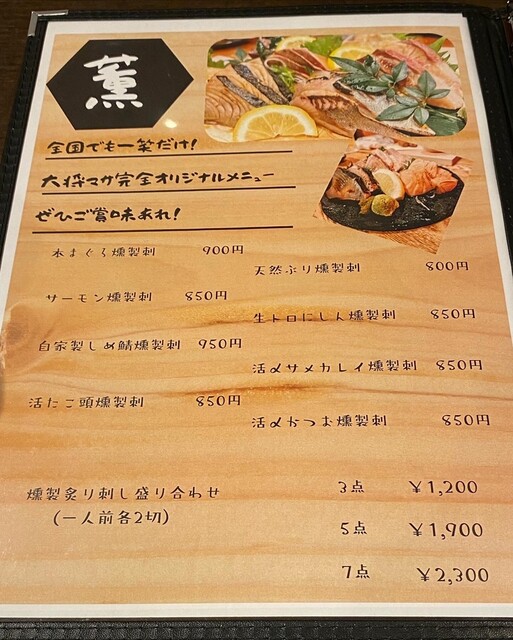 薫
全国でも一笑だけ!
大将マサ完全オリジナルメニュー
ぜひご賞味あれ!
本まぐろ燻製刺 900円
天然ぶり燻製刺 800円
サーモン燻製刺 850円
生トロにしん燻製刺 850円
自家製しめ鯖燻製刺 950円
活〆サメカレイ燻製刺 850円
活たこ頭燻製刺 850円
活〆かつお燻製刺 850円
燻製炙り刺し盛り合わせ 3点 ¥1,200
(一人前各2切)
5点 ¥1,900
7点 ¥2,300